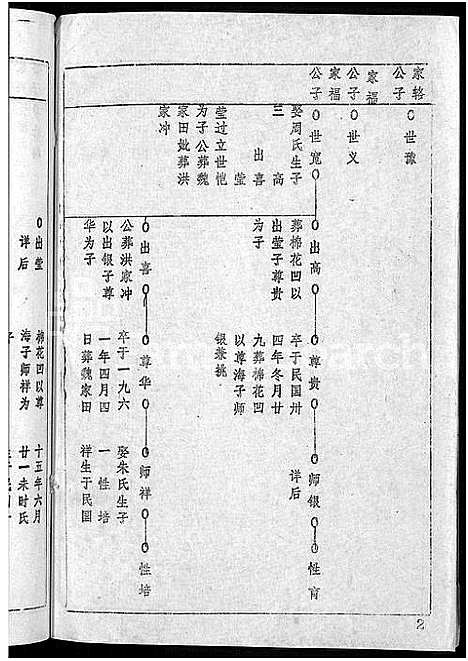 家辂公子
O世豫
家福公子
O世义
家福公子
O世宽
娶周氏生子
三 高
出喜
莹
莹过立世恺
为子公葬魏
家田妣葬洪
家冲
O出高
葬棉花凹以
出莹子尊贵
为子
O尊贵
卒于民国卅
四年冬月廿
九葬棉花凹
以尊海子师
银兼挑
O师银
详后
O性育
O出喜
公葬洪家冲
以出银子尊
华为子
O尊华
卒于一九六
一年四月四
日葬魏家田
O师祥
娶朱氏生子
一 性培
祥生于民国
O性培
2
O出莹
详后
棉花凹以尊
海子师祥为
子
十五年六月
廿一未时氏